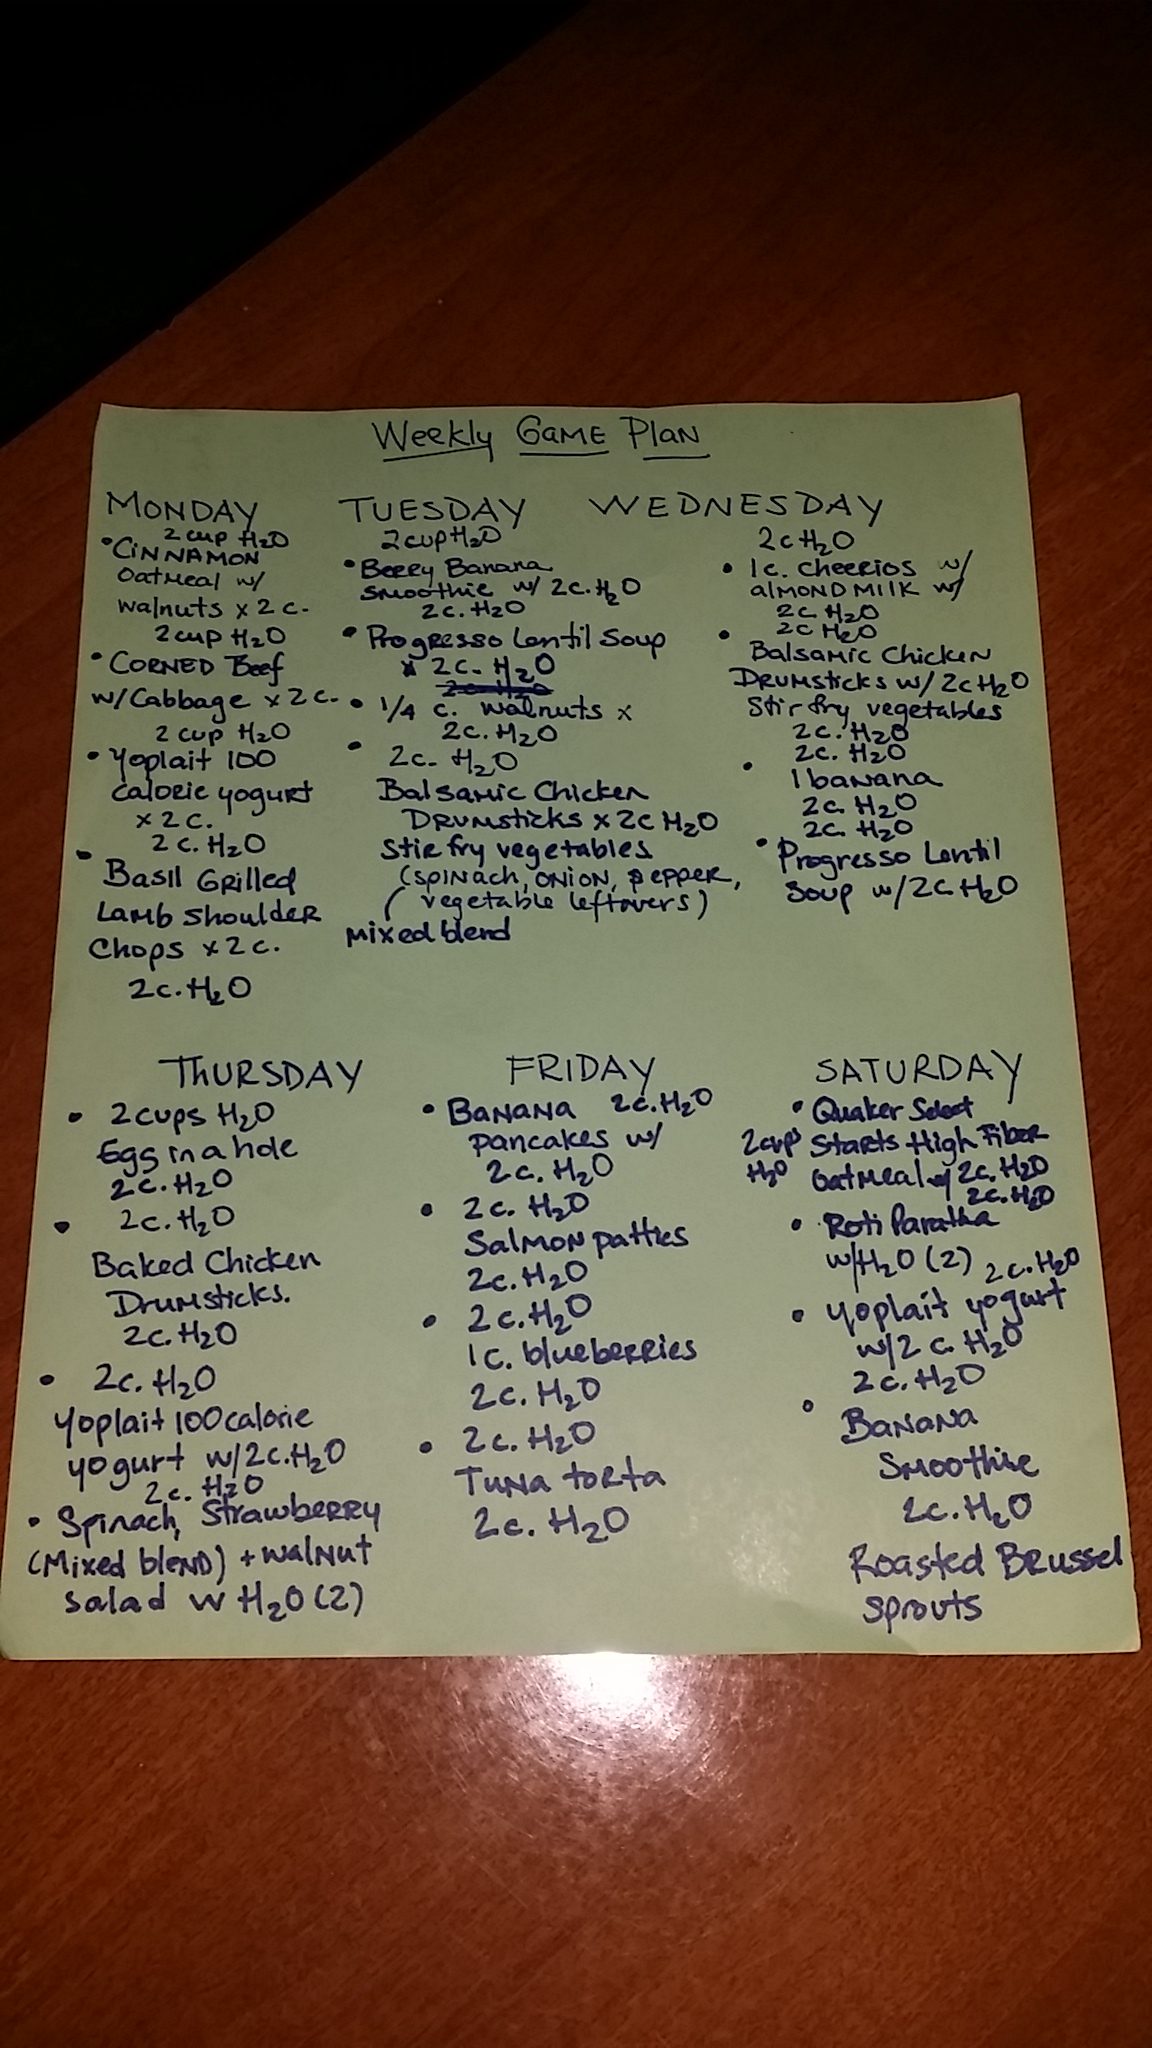 Weekly Game Plan
MONDAY
2 cup H2O
• Cinnamon
Oatmeal w/
walnuts x 2 c.
2 cup H2O
• Corned Beef
w/Cabbage x 2 c.
2 cup H2O
• Yoplait 100
calorie yogurt
x 2 c.
2 c. H2O
• Basil Grilled
Lamb Shoulder
Chops x 2 c.
2 c. H2O
TUESDAY
2 cup H2O
• Berry Banana
smoothie w/ 2 c. H2O
2 c. H2O
• Progresso Lentil Soup
x 2 c. H2O
2 c. H2O
• 1/4 c. walnuts x
2 c. H2O
• 2 c. H2O
Balsamic Chicken
Drumsticks x 2c H2O
Stir fry vegetables
(spinach, onion, pepper,
(vegetable leftovers)
mixed blend
WEDNESDAY
2 c H2O
• 1c. cheerios w/
almond milk w/
2c. H2O
2c H2O
• Balsamic Chicken
Drumsticks w/ 2c H2O
Stir fry vegetables
2c. H2O
2c. H2O
• 1 banana
2c. H2O
2c. H2O
• Progresso Lentil
Soup w/ 2c. H2O
THURSDAY
• 2 cups H2O
Egg in a hole
2 c. H2O
• 2 c. H2O
Baked Chicken
Drumsticks.
2c. H2O
• 2c. H2O
Yoplait 100 calorie
yogurt w/ 2c. H2O
2 c. H2O
• Spinach, Strawberry
(Mixed blend) + walnut
salad w H2O (2)
FRIDAY
• Banana 2c. H2O
pancakes w/
2 c. H2O
• 2 c. H2O
Salmon patties
2c. H2O
• 2 c. H2O
1 c. blueberries
2 c. H2O
• 2 c. H2O
Tuna torta
2 c. H2O
SATURDAY
• Quaker Select
2 cup Starts High Fiber
H2O Oatmeal w/ 2c. H2O
2c. H2O
• Roti Paratha
w/H2O (2) 2c. H2O
• Yoplait yogurt
w/2 c. H2O
2 c. H2O
• Banana
Smoothie
2 c. H2O
Roasted Brussel
sprouts